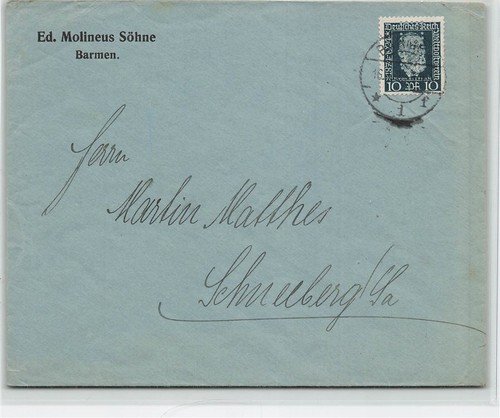 Ed. Molineus Söhne
Barmen.
Deutsches Reich
10 Pf 10
Herrn
Martin Matthes
Schneeberg/Sa